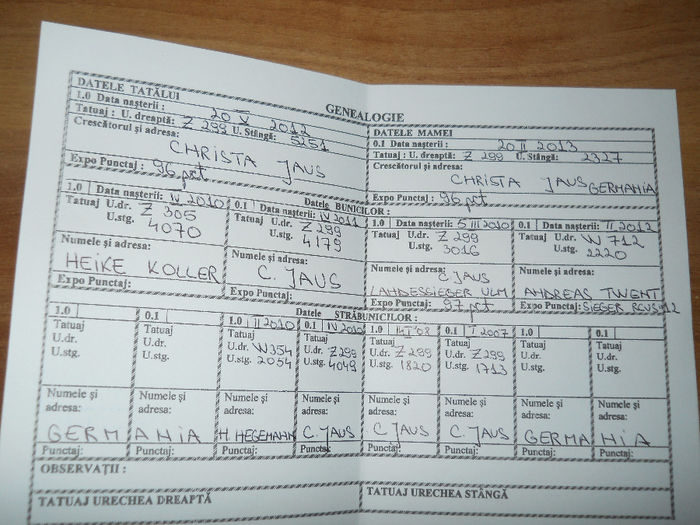 GENEALOGIE
DATELE TATĂLUI
1.0 Data nașterii : 20 V 2012
Tatuaj : U. dreaptă: Z 299 U. Stângă: 5251
Crescătorul și adresa:
CHRISTA JAUS
Expo Punctaj : 96 pct
DATELE MAMEI
0.1 Data nașterii : 20 II 2013
Tatuaj : U. dreaptă: Z 299 U. Stângă: 2327
Crescătorul și adresa:
CHRISTA JAUS GERMANIA
Expo Punctaj : 96 pct
Datele BUNICILOR :
1.0 Data nașterii: IV 2010
Tatuaj U.dr. Z 305
U.stg. 4070
Numele și adresa:
HEIKE KOLLER
Expo Punctaj:
0.1 Data nașterii: IV 2011
Tatuaj U.dr. Z 299
U.stg. 4179
Numele și adresa:
C. JAUS
Expo Punctaj:
1.0 Data nașterii: 5 III 2010
Tatuaj U.dr. Z 299
U.stg. 3016
Numele și adresa:
C JAUS
LANDESSIEGER ULM
Expo Punctaj: 97 pct
0.1 Data nașterii: II 2012
Tatuaj U.dr. W 712
U.stg. 2220
Numele și adresa:
ANDREAS TWENT
Expo Punctaj: SIEGER
Datele STRĂBUNICILOR :
1.0
Tatuaj
U.dr.
U.stg.
Numele și
adresa:
GERMANIA
Punctaj:
0.1
Tatuaj
U.dr.
U.stg.
Numele și
adresa:
Punctaj:
1.0 II 2010
Tatuaj
U.dr. W354
U.stg. 2054
Numele și
adresa:
H HEGEMANN
Punctaj:
0.1 IV 2010
Tatuaj
U.dr. Z299
U.stg. 4049
Numele și
adresa:
C. JAUS
Punctaj:
1.0
Tatuaj
U.dr. Z 299
U.stg. 1820
Numele și
adresa:
C JAUS
Punctaj:
0.1 I 2007
Tatuaj
U.dr. Z299
U.stg. 1713
Numele și
adresa:
C. JAUS
Punctaj:
1.0
Tatuaj
U.dr.
U.stg.
Numele și
adresa:
GERMANIA
Punctaj:
0.1
Tatuaj
U.dr.
U.stg.
Numele și
adresa:
Punctaj:
OBSERVAȚII :
TATUAJ URECHEA DREAPTĂ
TATUAJ URECHEA STÂNGĂ